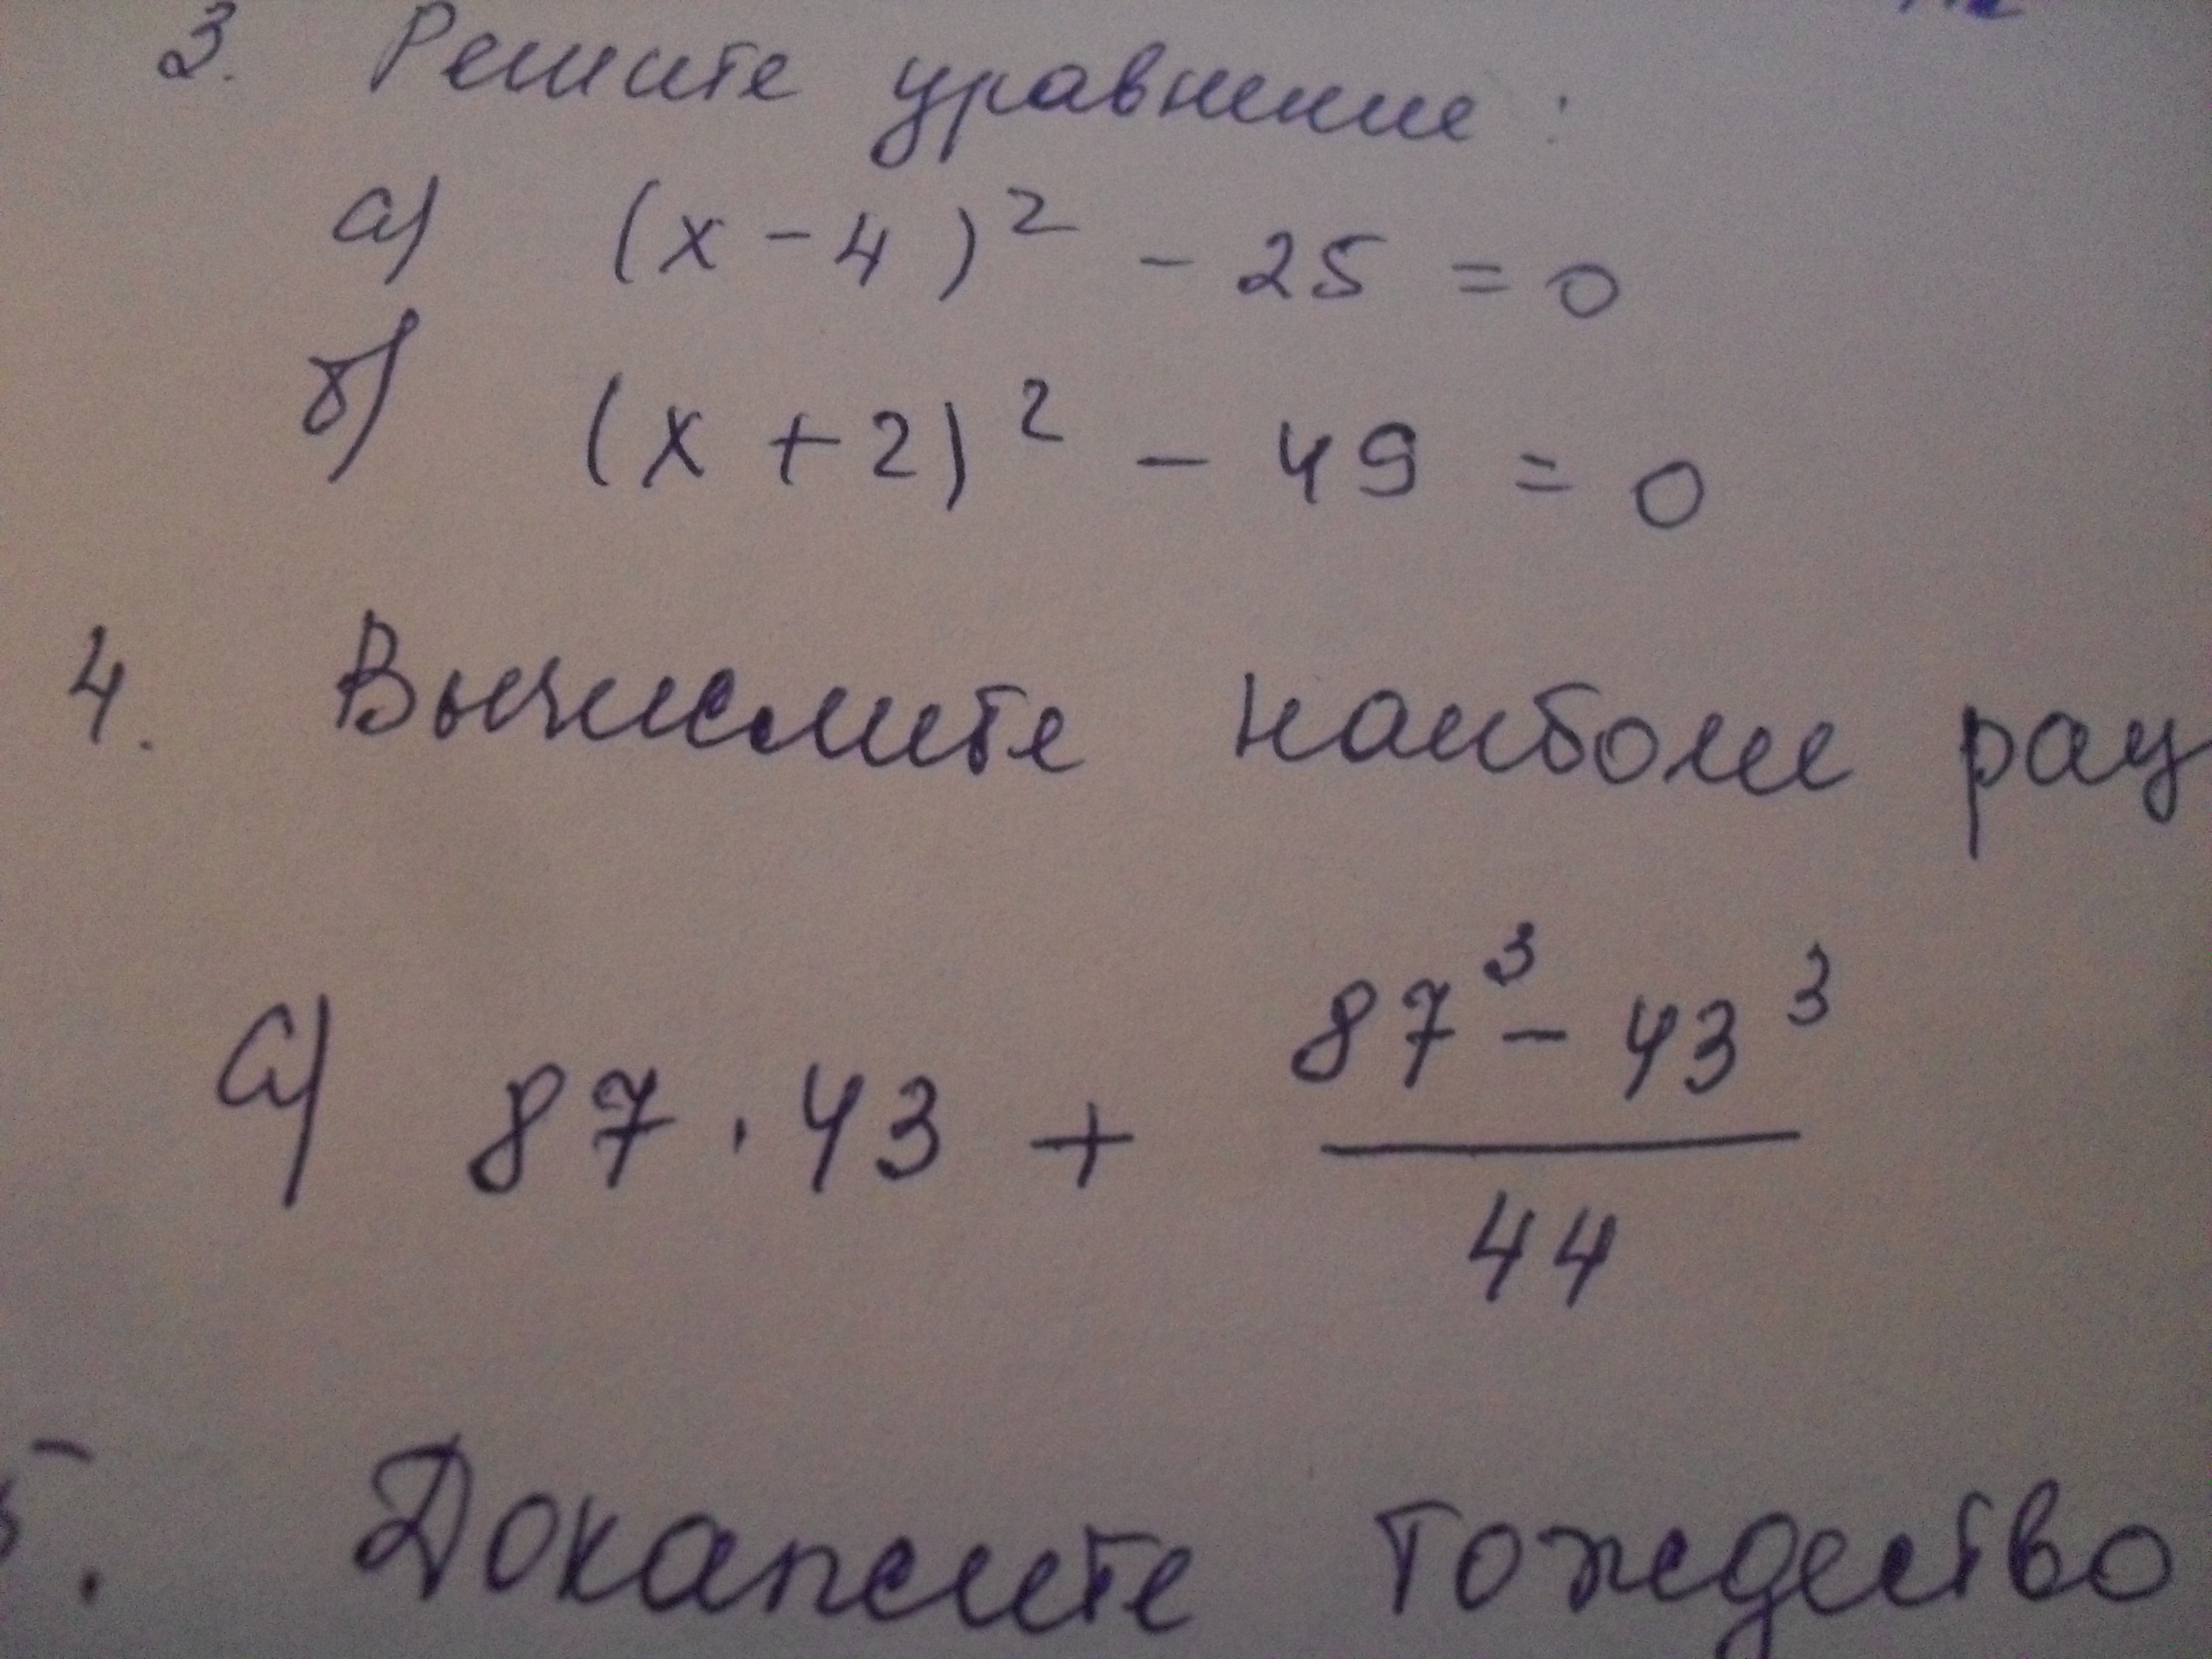 3. Решите уравнение:
а) (x - 4)² - 25 = 0
б) (x + 2)² - 49 = 0
4. Вычислите наиболее рац
а) 87 · 43 + (87³ - 43³)/44
5. Докажите тождество